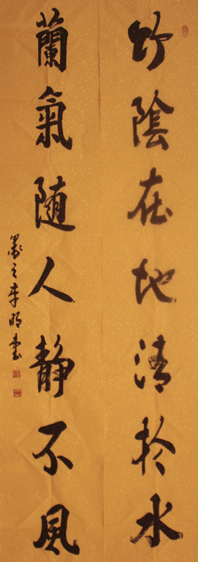 竹陰在地清於水
蘭氣随人静不風
墨之李明書